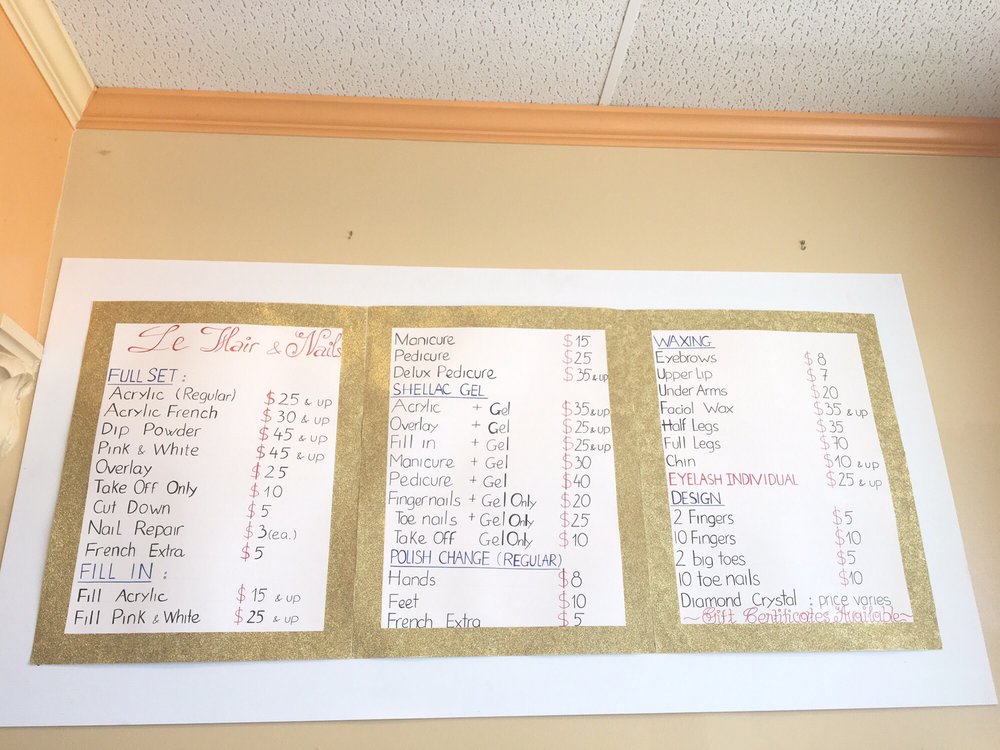 Le Hair & Nails
FULL SET :
Acrylic (Regular) $25 & up
Acrylic French $30 & up
Dip Powder $45 & up
Pink & White $45 & up
Overlay $25
Take Off Only $10
Cut Down $5
Nail Repair $3 (ea.)
French Extra $5
FILL IN :
Fill Acrylic $15 & up
Fill Pink & White $25 & up
Manicure $15
Pedicure $25
Delux Pedicure $35 & up
SHELLAC GEL
Acrylic + Gel $35 & up
Overlay + Gel $25 & up
Fill in + Gel $25 & up
Manicure + Gel $30
Pedicure + Gel $40
Fingernails + Gel Only $20
Toe nails + Gel Only $25
Take Off Gel Only $10
POLISH CHANGE (REGULAR)
Hands $8
Feet $10
French Extra $5
WAXING
Eyebrows $8
Upper Lip $7
Under Arms $20
Facial Wax $35 & up
Half Legs $35
Full Legs $70
Chin $10 & up
EYELASH INDIVIDUAL $25 & up
DESIGN
2 Fingers $5
10 Fingers $10
2 big toes $5
10 toe nails $10
Diamond Crystal : price varies
~Gift Certificates Available~